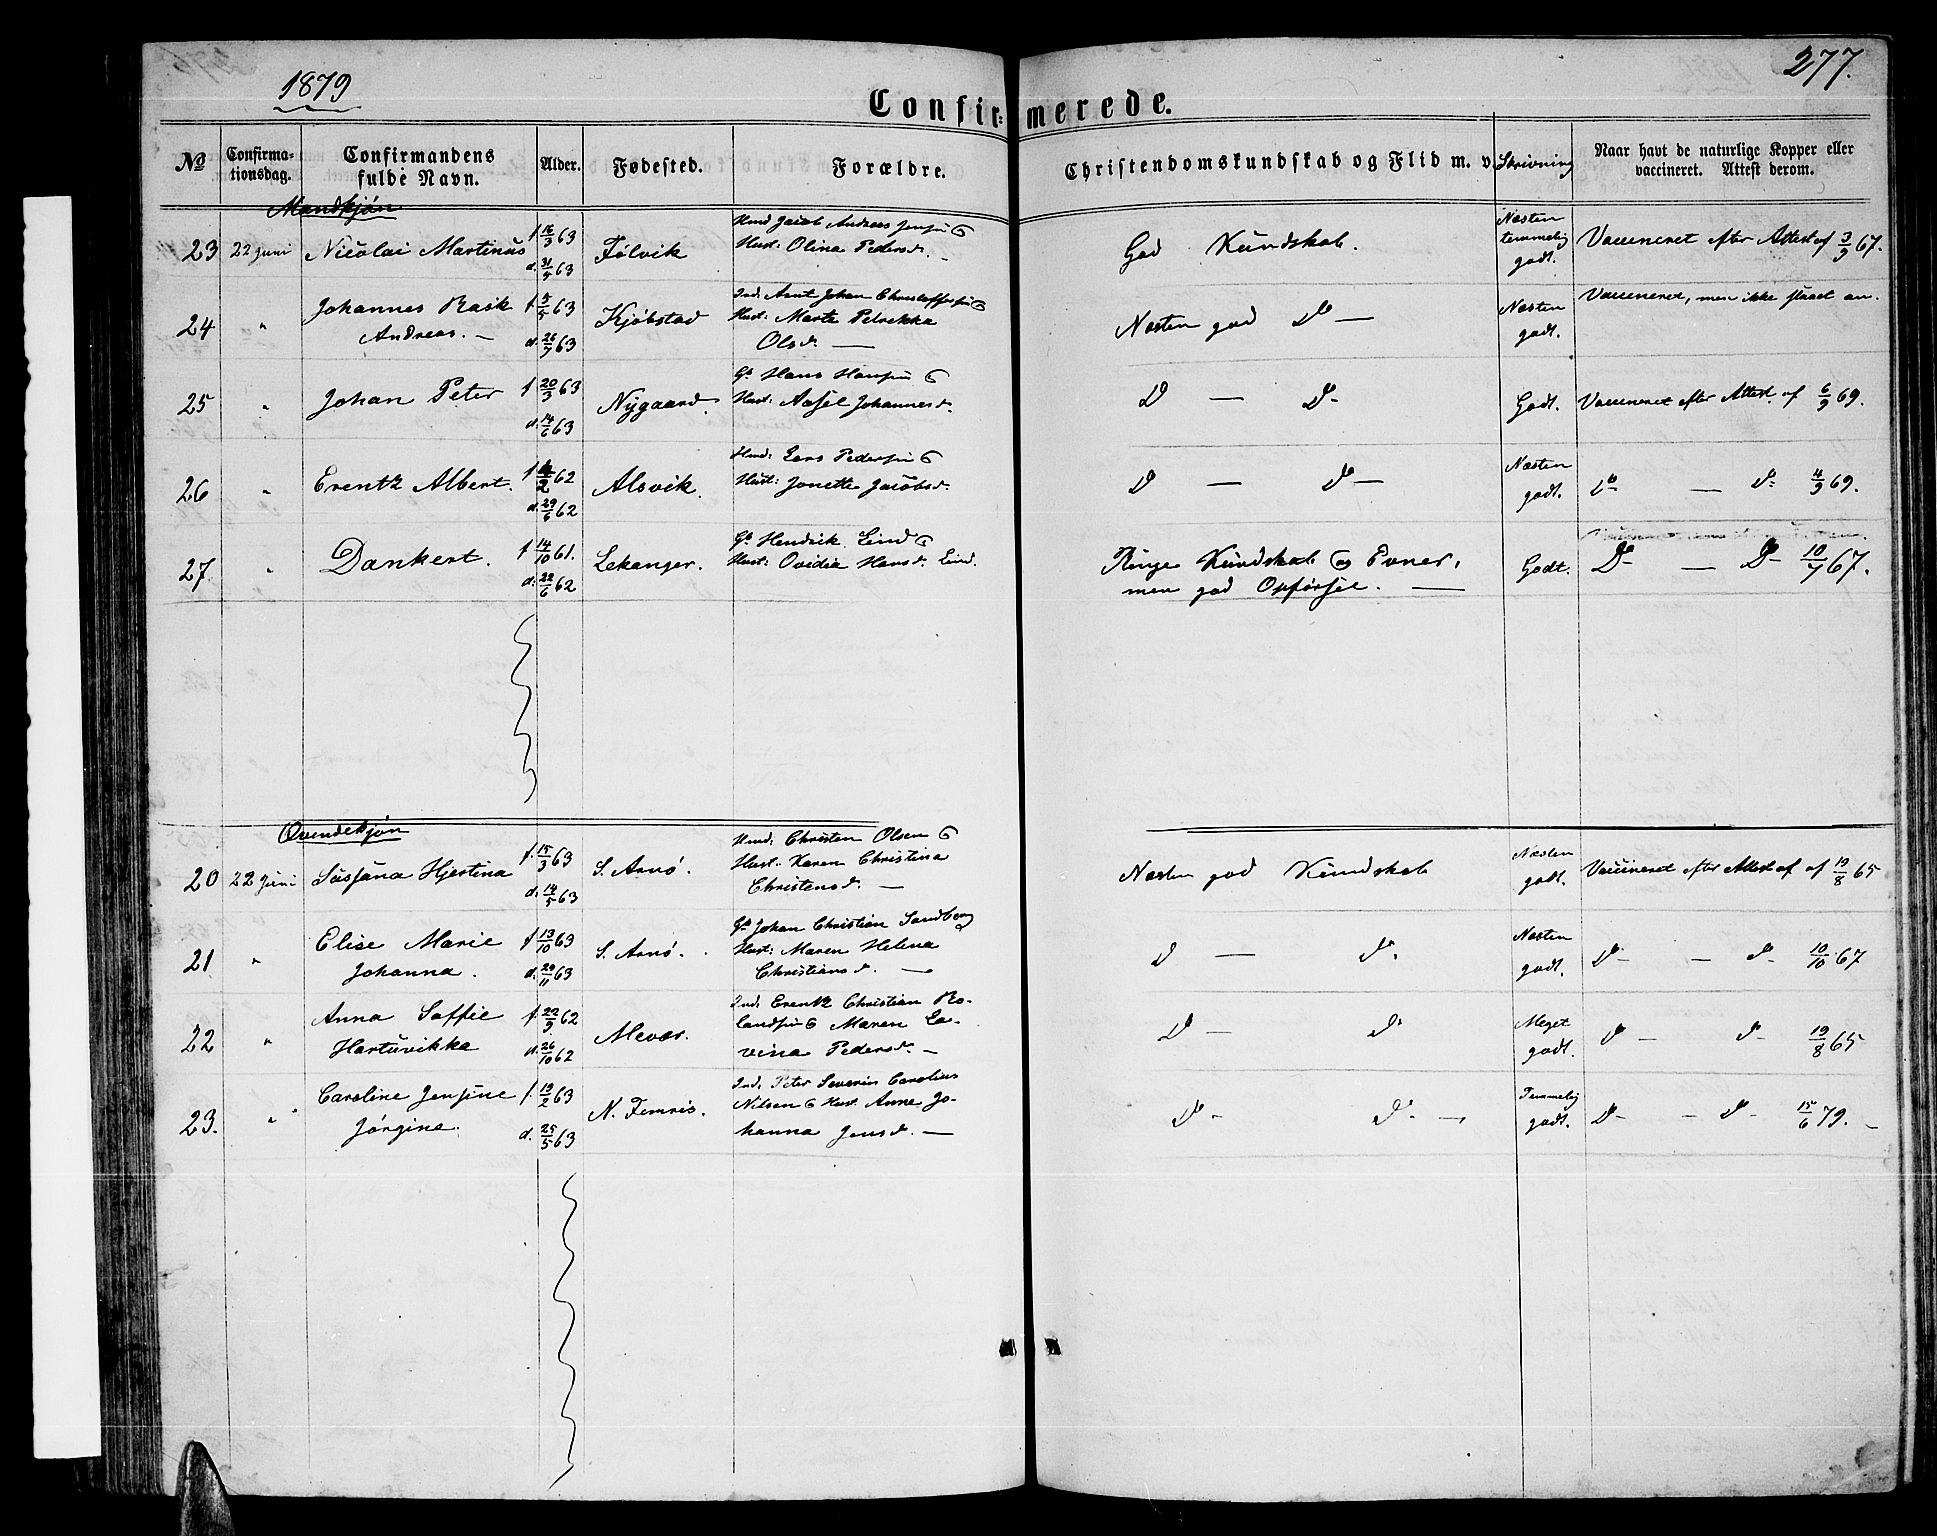 1879
277.
Confirmerede.
No
Confirmationsdag.
Confirmandens fulde Navn.
Alder.
Fødested.
Forældre.
Christendomskundskab og Flid m. v.
Skrivning
Naar havt de naturlige Kopper eller vaccineret. Attest derom.
Mandkjøn
23 22 Juni Nicolai Martinus f 16/3 63 d. 31/5 63 Følvik Jacob Andreas Hust: Olina Pedersd. God Kundskab. Næsten temmelig godt. Vaccineret efter Attest af 3/9 67.
24 " Johannes Rask Andreas. f 5/5 63 d. 26/7 63 Kjøbstad Ind: Arnt Johan Hust: Marte Petrikka Olsd. Næsten god Do Næsten godt. Vaccineret, men ikke slaaet an.
25 " Johan Peter f 20/3 63 d. 14/6 63 Nygaard. Hans Hansen & Hust: Johannesd. Do Do Godt. Vaccineret efter Attest af 6/9 69.
26 " Erentz Albert. 62 d. 29/6 62 Alsvik. Lars Pedersen & Hust: Jonette Jacobsd. Do Do Næsten godt. Do Do 4/9 69.
27 " Dankert. f 14/10 61. d. 22/6 62 Lekanger. Hendrik Lind & Hust: Ovidia Hansd. Lind. Ringe Kundskab og Evner, men god Opførsel. Godt. Do Do 67.
Qvindekjøn
20 22 Juni Susjana Hjertina f. 15/3 63 d. 14/5 63 S. Arnø. Christen Olsen & Hust. Karen Christina Christensd. Næsten god Kundskab Næsten godt. Vaccineret efter Attest af af 19/8 65
21 " Elise Marie Johanna. f 13/10 63 d. 29/11 63 S. Arnø. Johan Christian Sandberg & Hust: Maren Helena Christiansd. Do Do Næsten godt. Do Do 10/10 67
22 " Anna Soffie Hartuvikka f. 22/9 62 d. 26/10 62 Mevær. Ind: Erentz Christian Rolandsen & Maren Lavina Pedersd. Do Do Meget godt. Do Do 19/8 65
23. " Caroline Jensine Jørgine. f. 19/2 63 d. 25/5 63 N. Femris. Ind: Peter Severin Carolius Nilsen & Hust. Anne Johanna Jensd. Do Do Temmelig godt. Do Do 15/6 79.